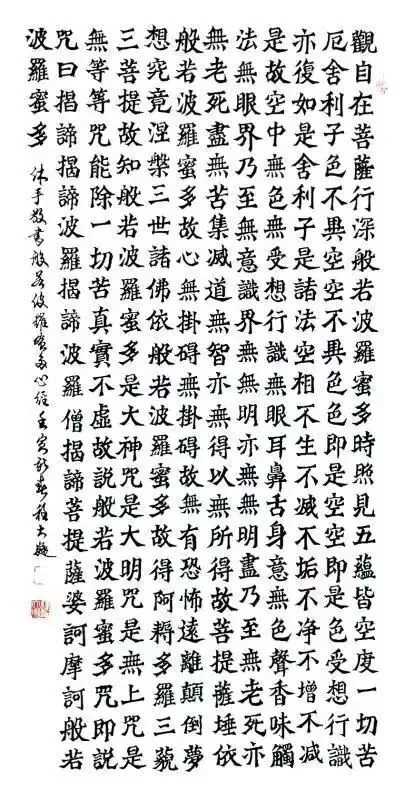 觀自在菩薩行深般若波羅蜜多時照見五蘊皆空度一切苦
厄舍利子色不異空空不異色色即是空空即是色受想行識
亦復如是舍利子是諸法空相不生不滅不垢不净不增不减
是故空中無色無受想行識無眼耳鼻舌身意無色聲香味觸
法無眼界乃至無意識界無無明亦無無明盡乃至無老死亦
無老死盡無苦集滅道無智亦無得以無所得故菩提薩埵依
般若波羅蜜多故心無掛碍無掛碍故無有恐怖遠離顛倒夢
想究竟涅槃三世諸佛依般若波羅蜜多故得阿耨多羅三藐
三菩提故知般若波羅蜜多是大神咒是大明咒是無上咒是
無等等咒能除一切苦真實不虛故説般若波羅蜜多咒即説
咒曰揭諦揭諦波羅揭諦波羅僧揭諦菩提薩婆訶摩訶般若
波羅蜜多
沐手敬書般若波羅蜜多心經壬寅新春程大